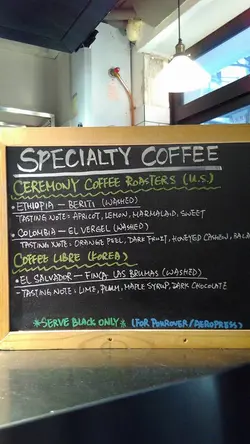 SPECIALTY COFFEE
CEREMONY COFFEE ROASTERS (U.S.)
• ETHIOPIA — BERITI (WASHED)
TASTING NOTE: APRICOT, LEMON, MARMALAID, SWEET
• COLOMBIA — EL VERGEL (WASHED)
TASTING NOTE: ORANGE PEEL, DARK FRUIT, HONEYED CASHEW, BALA
COFFEE LIBRE (KOREA)
• EL SALVADOR — FINCA LAS BRUMAS (WASHED)
- TASTING NOTE: LIME, PLUM, MAPLE SYRUP, DARK CHOCOLATE
*SERVE BLACK ONLY* (FOR POUROVER/AEROPRESS)